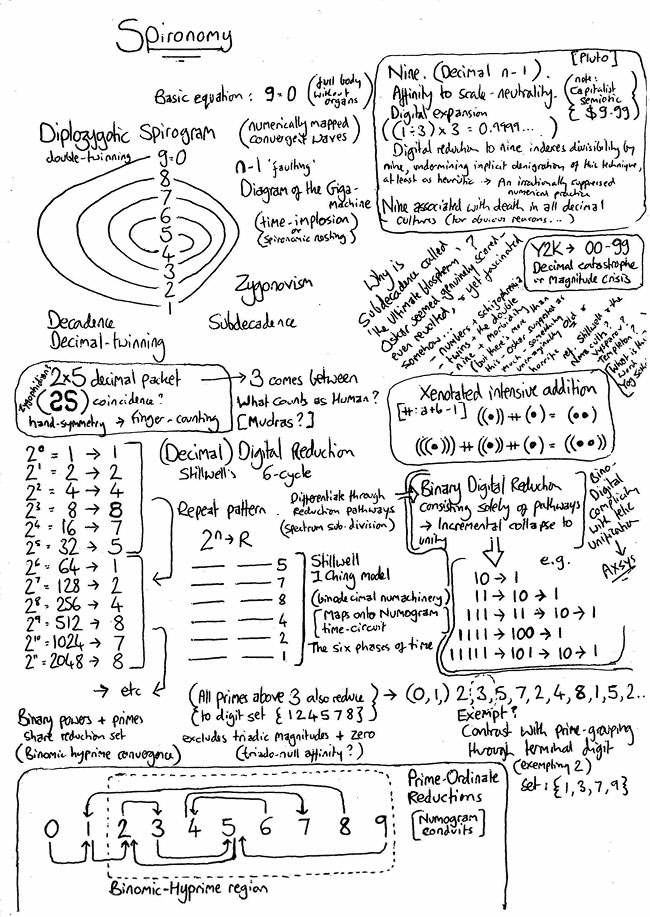 Spironomy
Basic equation : 9=0
(full body
without
organs)
Diplozygotic Spirogram
double-twinning
(numerically mapped
convergent waves)
9=0
8
7
6
5
4
3
2
1
n-1 'faulting'
Diagram of the Giga-
machine
(time-implosion
or
spironomic nesting)
Zygonovism
Decadence
Subdecadence
Decimal-twinning
[Pluto]
Nine. (Decimal n-1).
Affinity to scale-neutrality.
(note:
Capitalist
semiotic
$9.99)
Digital expansion
((1÷3) x 3 = 0.9999...)
Digital reduction to nine indexes divisibility by
nine, undermining implicit denigration of this technique,
at least as heuristic → An irrationally suppressed
numerical practice
Nine associated with death in all decimal
cultures (for obvious reasons...)
Y2K → 00-99
Decimal catastrophe
or Magnitude Crisis
Why is
Subdecadence called
'the ultimate blasphemy'?
Oskar seemed genuinely scared -
even revolted, & yet fascinated
somehow...
- numbers + schizophrenia
- twins + the double
nine + morbidity
(but there's more than
this - Oskar suggested an
unimaginably old &
horrific
ref: Stillwell + the
Nine cults?
Vysparov?
Templeton?
(What is the
worst
2x5 decimal packet
(2S) coincidence?
hand-symmetry → finger-counting
→ 3 comes between
What Counts as Human?
[Mudras?]
Xenotated intensive addition
[#: a+b-1] ((•)) # (•) = (••)
(((•))) # ((•)) # (•) = ((••))
2⁰ = 1 → 1
2¹ = 2 → 2
2² = 4 → 4
2³ = 8 → 8
2⁴ = 16 → 7
2⁵ = 32 → 5
2⁶ = 64 → 1
2⁷ = 128 → 2
2⁸ = 256 → 4
2⁹ = 512 → 8
2¹⁰ = 1024 → 7
2¹¹ = 2048 → 8
→ etc
(Decimal) Digital Reduction
Stillwell's 6-cycle
Repeat pattern
Differentiate through
Reduction pathways
(spectrum sub-division)
2ⁿ → R
5
7
8
4
2
1
Stillwell
I Ching model
(binodecimal numachinery)
[Maps onto Numogram
time-circuit
The six phases of time
Binary Digital Reduction
consisting solely of pathways
→ Incremental collapse to
unity
Bino-
Digital
complicity
with telic
unification
↓
Axsys
e.g.
10 → 1
11 → 10 → 1
111 → 11 → 10 → 1
1111 → 100 → 1
11111 → 101 → 10 → 1
Binary powers + primes
share reduction set
(Binomic hyprime convergence)
(All primes above 3 also reduce
to digit set {124578})
→ (0,1,) 2,3,5,7,2,4,8,1,5,2..
excludes triadic magnitudes + zero
(triado-null affinity?)
Exempt?
Contrast with prime-grouping
through terminal digit
(exempting 2)
set: {1,3,7,9}
Prime-Ordinate
Reductions
[Numogram
conduits]
0 1 2 3 4 5 6 7 8 9
Binomic-Hyprime region